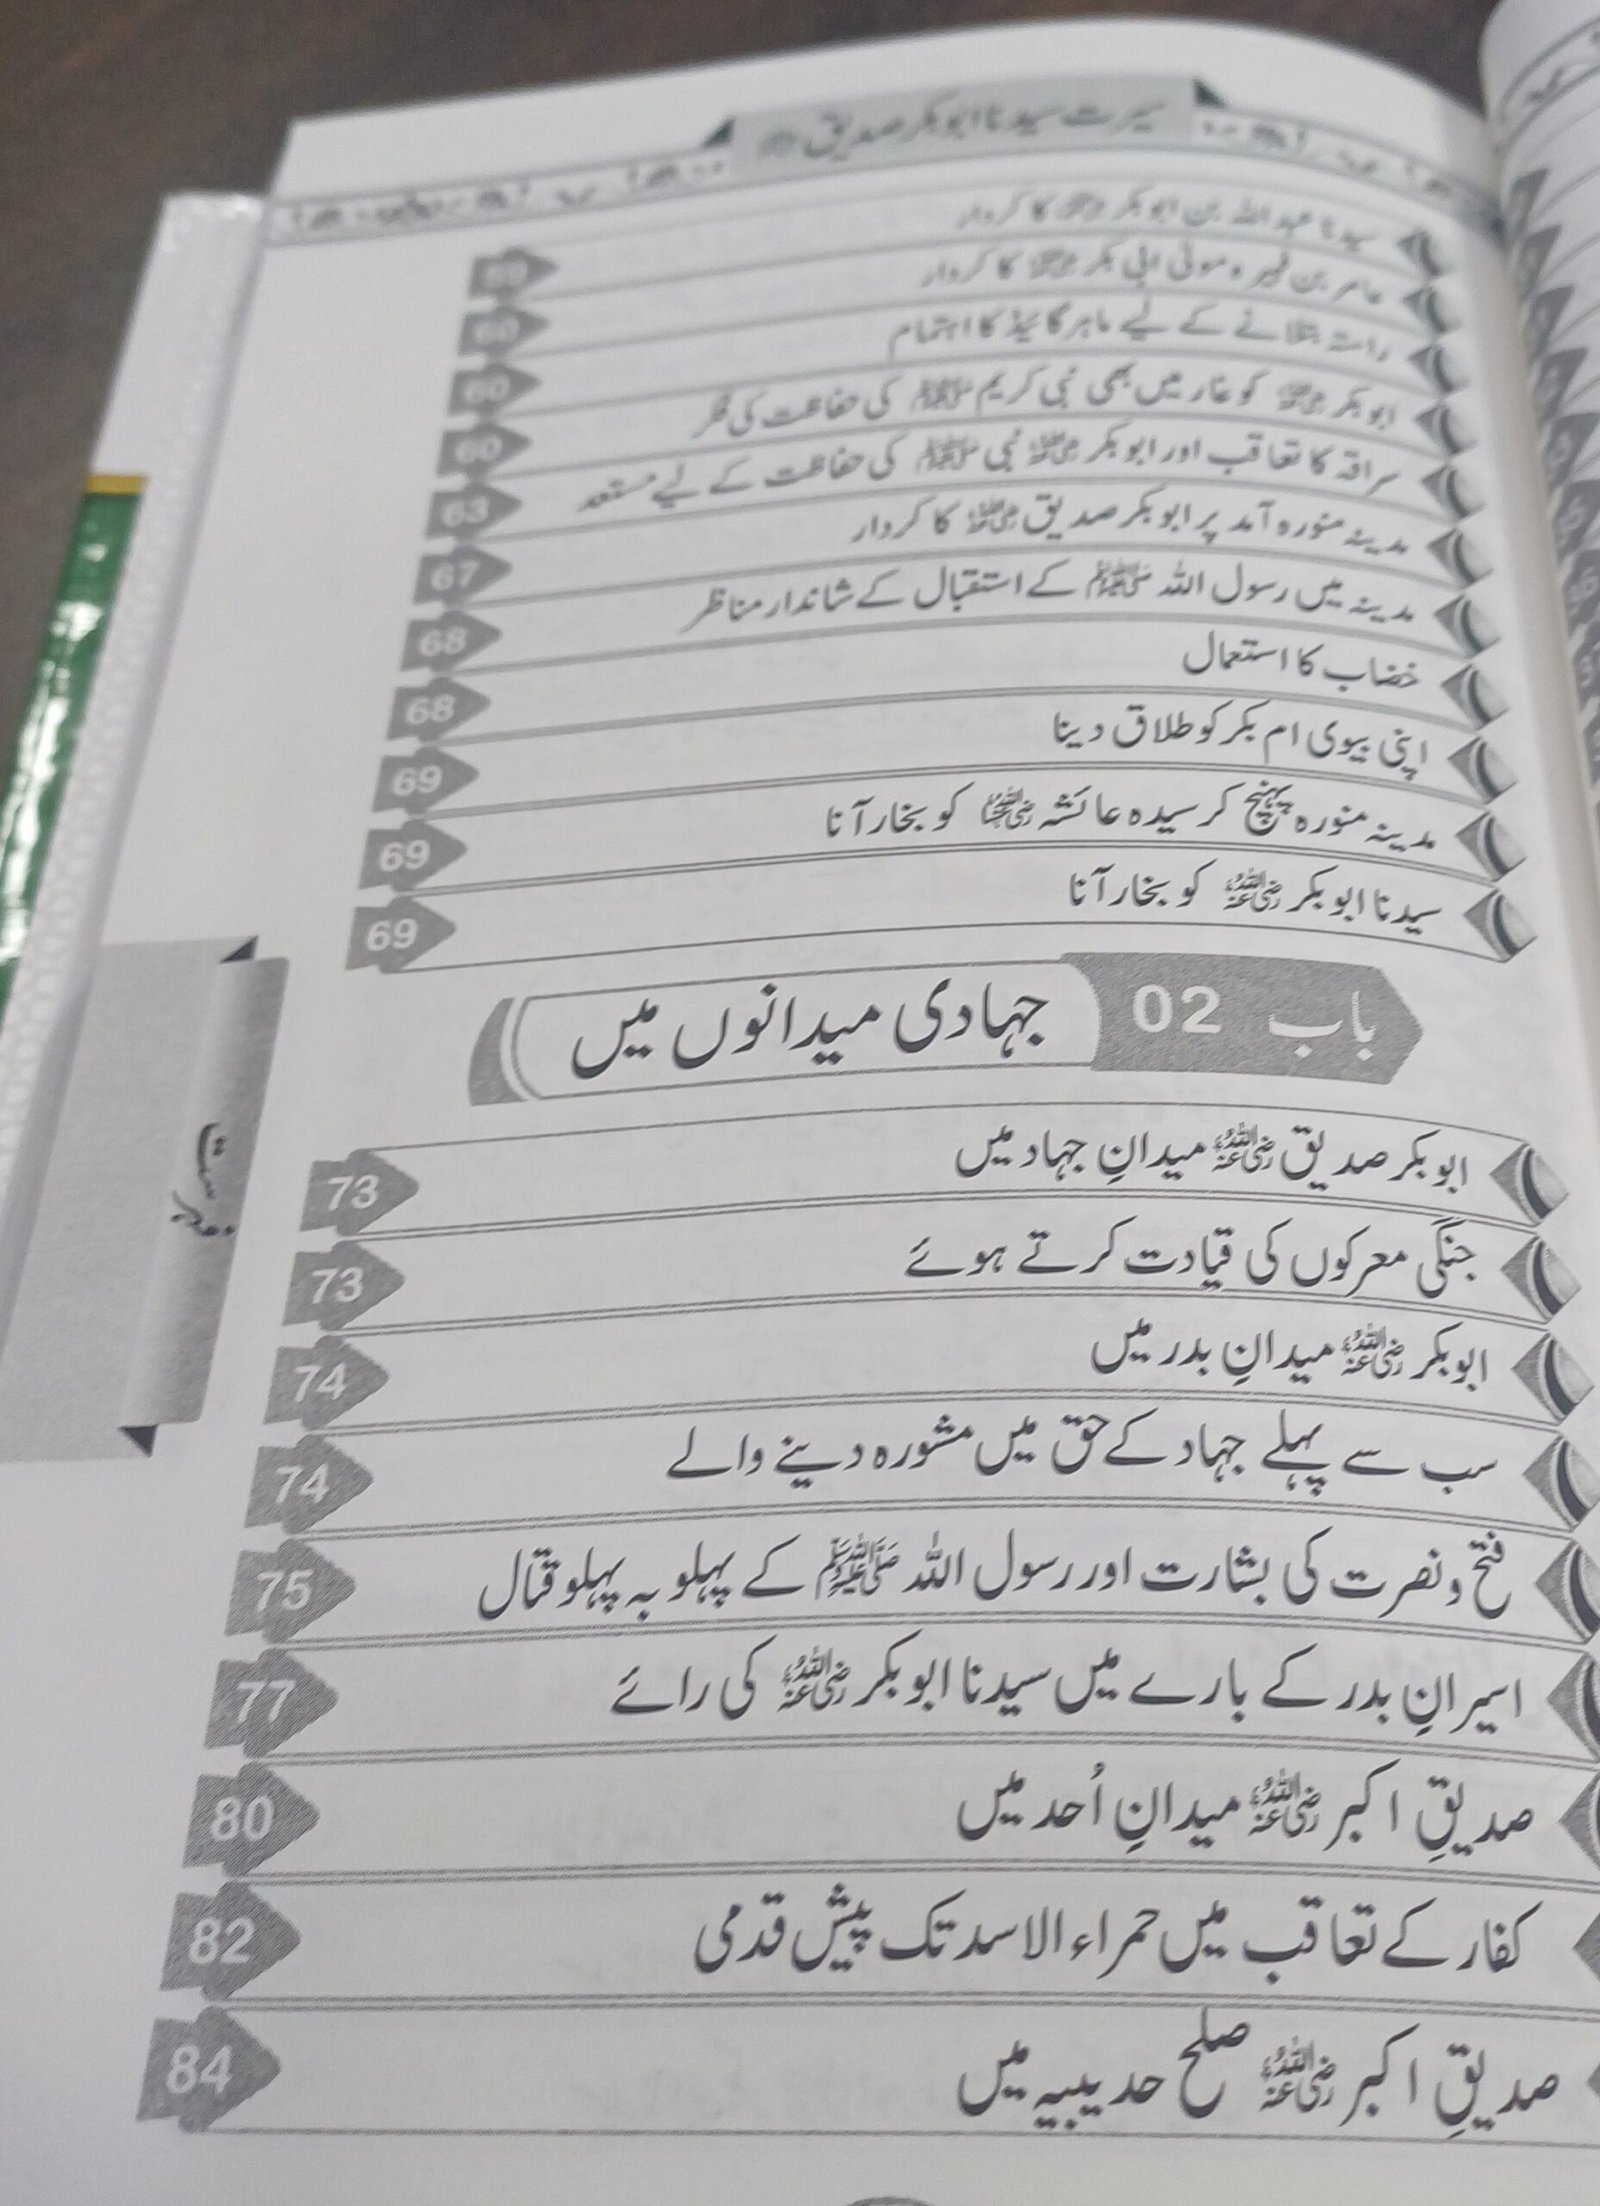 سیرت سیدنا ابوبکر صدیق
سیدنا عبد اللہ بن ابو بکر رضی اللہ عنہ کا کردار 59
عامر بن فہیرہ مولیٰ ابی بکر رضی اللہ عنہ کا کردار 60
راستہ بتلانے کے لیے ماہر گائیڈ کا اہتمام 60
ابو بکر رضی اللہ عنہ کو غار میں بھی نبی کریم ﷺ کی حفاظت کی فکر 60
سراقہ کا تعاقب اور ابو بکر رضی اللہ عنہ نبی ﷺ کی حفاظت کے لیے مستعد 63
مدینہ منورہ آمد پر ابو بکر صدیق رضی اللہ عنہ کا کردار 67
مدینہ میں رسول اللہ ﷺ کے استقبال کے شاندار مناظر 68
خضاب کا استعمال 68
اپنی بیوی ام بکر کو طلاق دینا 69
مدینہ منورہ پہنچ کر سیدہ عائشہ رضی اللہ عنہا کو بخار آنا 69
سیدنا ابو بکر رضی اللہ عنہ کو بخار آنا 69
باب 02 جہادی میدانوں میں
ابو بکر صدیق رضی اللہ عنہ میدانِ جہاد میں 73
جنگی معرکوں کی قیادت کرتے ہوئے 73
ابو بکر رضی اللہ عنہ میدانِ بدر میں 74
سب سے پہلے جہاد کے حق میں مشورہ دینے والے 74
فتح و نصرت کی بشارت اور رسول اللہ ﷺ کے پہلو بہ پہلو قتال 75
اسیرانِ بدر کے بارے میں سیدنا ابو بکر رضی اللہ عنہ کی رائے 77
صدیقِ اکبر رضی اللہ عنہ میدانِ اُحد میں 80
کفار کے تعاقب میں حمراء الاسد تک پیش قدمی 82
صدیقِ اکبر رضی اللہ عنہ صلح حدیبیہ میں 84
فہرست